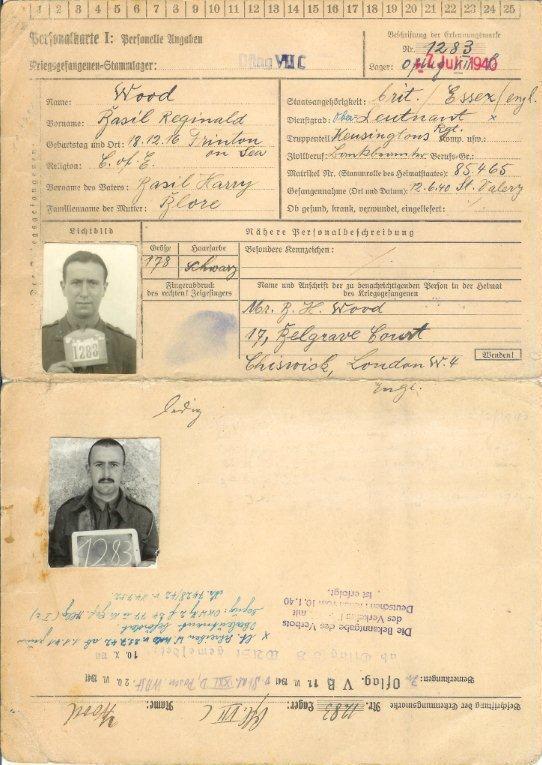 1 2 3 4 5 6 7 8 9 10 11 12 13 14 15 16 17 18 19 20 21 22 23 24 25
Personalkarte I: Personelle Angaben
Kriegsgefangenen-Stammlager: Oflag VII C
Beschriftung der Erkennungsmarke
Nr. 1283
Lager: Oflag VII C
7. Juli 1940
Name: Wood
Vorname: Basil Reginald
Geburtstag und Ort: 18.12.16 Frinton
on Sea
Religion: C. of E.
Vorname des Vaters: Basil Harry
Familienname der Mutter: Blore
Staatsangehörigkeit: brit. / Essex / engl.
Dienstgrad: Ober Leutnant x
Truppenteil: Kensingtons Rgt. Komp. usw.:
Zivilberuf: Berufs-Gr.:
Matrikel Nr. (Stammrolle des Heimatstaates): 85,465
Gefangennahme (Ort und Datum): 12.6.40 St. Valery
Ob gesund, krank, verwundet, eingeliefert:
Lichtbild
Nähere Personalbeschreibung
Größe
Haarfarbe
Besondere Kennzeichen:
178
Schwarz
Fingerabdruck
des rechten! Zeigefingers
Name und Anschrift der zu benachrichtigenden Person in der Heimat
des Kriegsgefangenen
Mr. B. H. Wood
17, Belgrave Court
Chiswick, London W.4
Engl.
Wenden!
1283
ledig
1283
Die Bekanntgabe des Verbots
des Verkehrs mit
Deutschen
vom 10.1.40
ist erfolgt.
Bemerkungen: Oflag. V B
Beschriftung der Erkennungsmarke Nr. 1283 Lager: Ofl. VII C Name: Wood